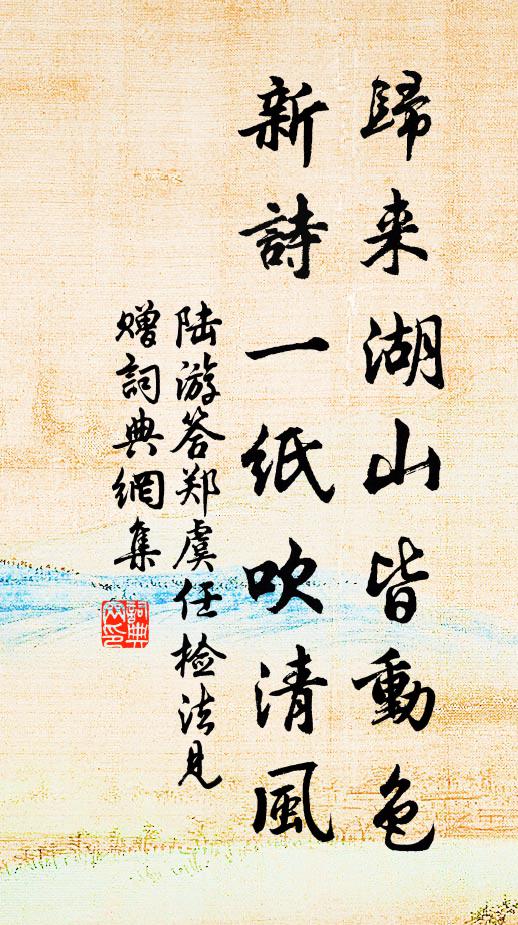 歸来湖山皆動色
新詩一紙吹清風
陆游答郑虞任检法见
赠詞典網集
詞典